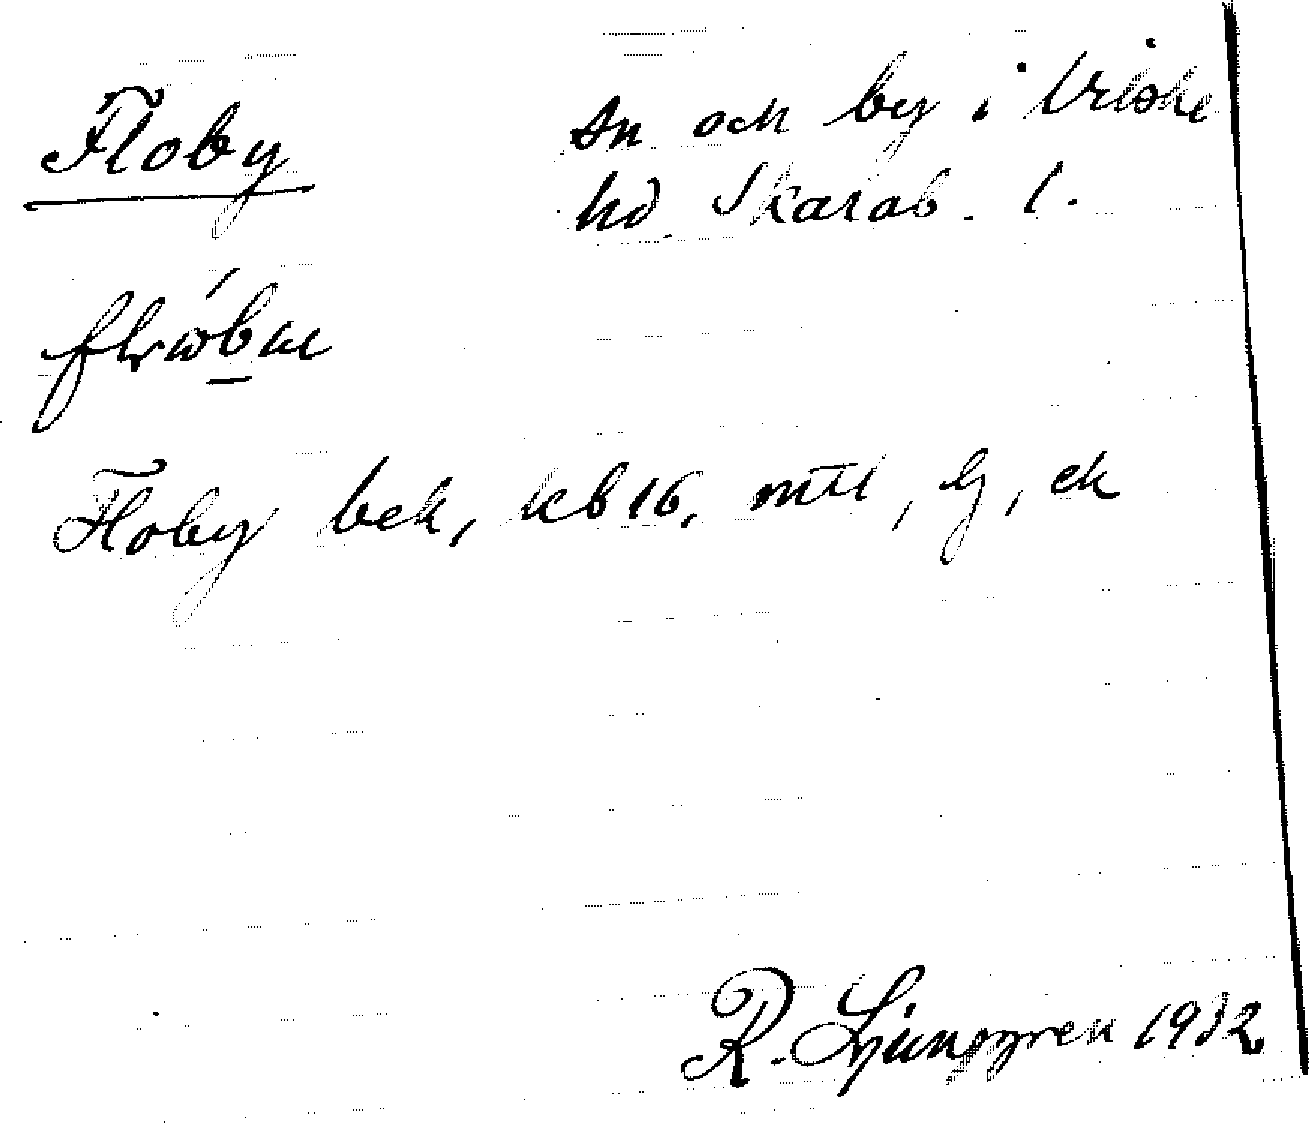 Floby
sn och by i Vilske
hd. Skarab. l.
Floby bek, kb 16, mtl, lj, ek
R. Ljunggren 1932